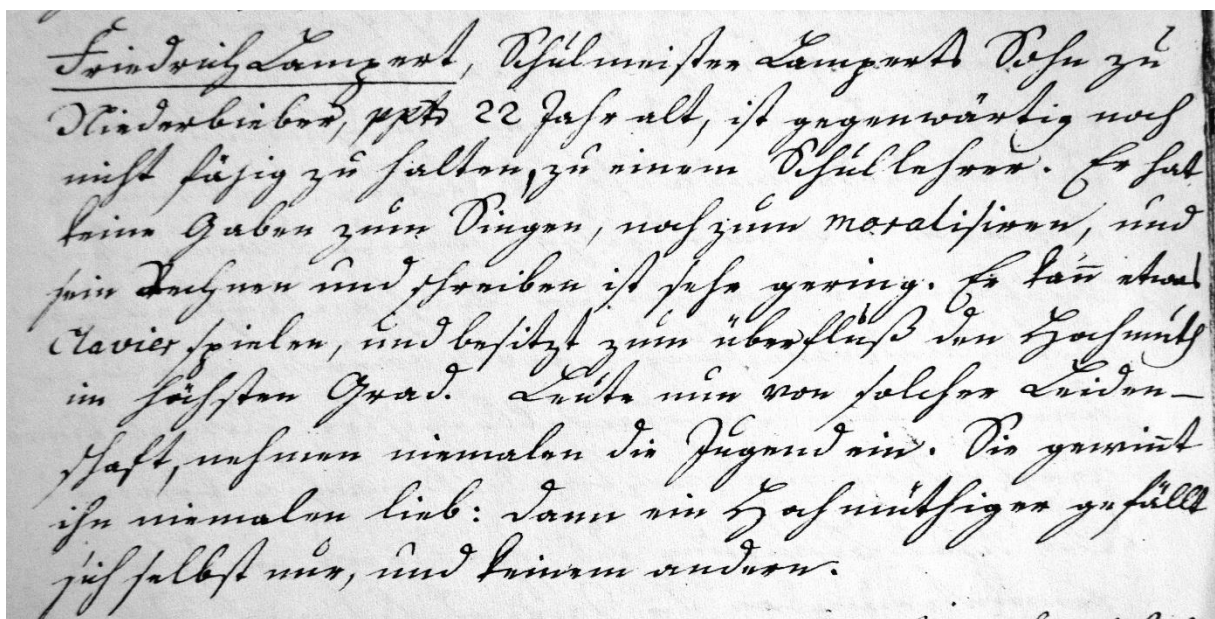 Friedrich Lampert, Schulmeister Lamperts Sohn zu
Niederbieber, ppts 22 Jahr alt, ist gegenwärtig noch
nicht fähig zu halten, zu einem Schullehrer. Er hat
keine Gaben zum Singen, noch zum moralisiren, und
sein Rechnen und schreiben ist sehr gering. Er kan̄ etwas
Clavier spielen, und besitzt zum überfluß den Hochmuth
im höchsten Grad. Leute nun von solcher Leiden-
schaft, nehmen niemalen die Jugend ein. Sie gewin̄t
ihn niemalen lieb: dann ein Hochmüthiger gefällt
sich selbst nur, und keinem andern.